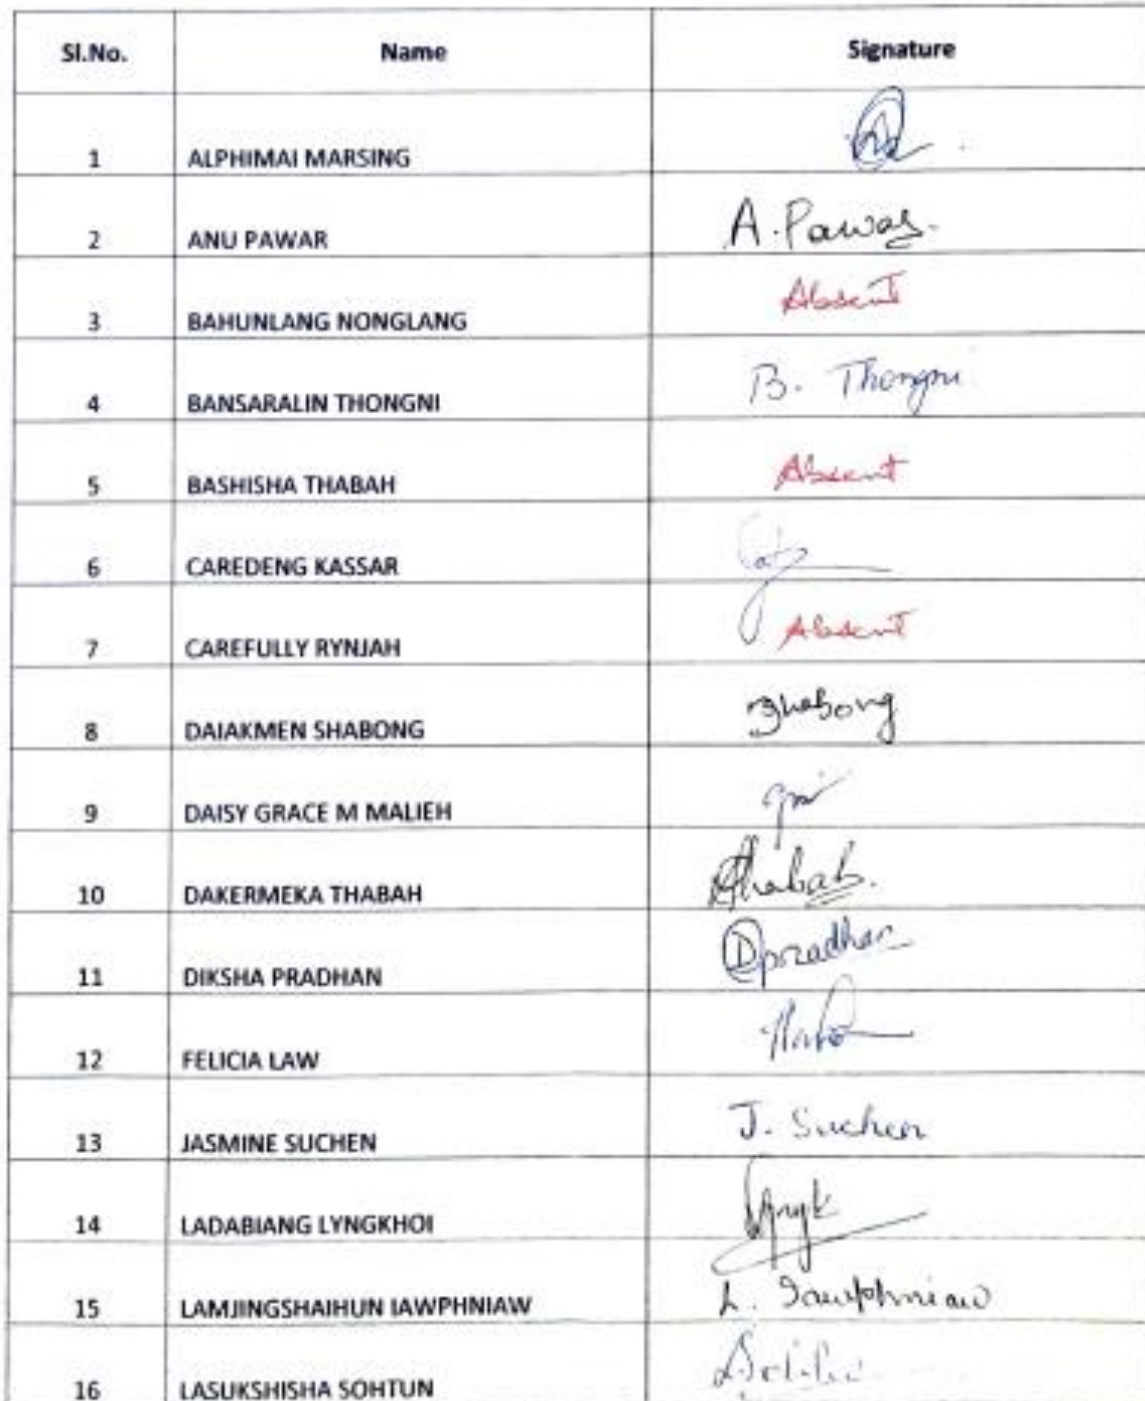 Sl.No. Name Signature
1 ALPHIMAI MARSING
2 ANU PAWAR A. Pawar.
3 BAHUNLANG NONGLANG Absent
4 BANSARALIN THONGNI B. Thongni
5 BASHISHA THABAH Absent
6 CAREDENG KASSAR
7 CAREFULLY RYNJAH Absent
8 DAIAKMEN SHABONG Shabong
9 DAISY GRACE M MALIEH
10 DAKERMEKA THABAH Thabah.
11 DIKSHA PRADHAN Dpradhan
12 FELICIA LAW
13 JASMINE SUCHEN J. Suchen
14 LADABIANG LYNGKHOI
15 LAMJINGSHAIHUN IAWPHNIAW L. Iawphniaw
16 LASUKSHISHA SOHTUN